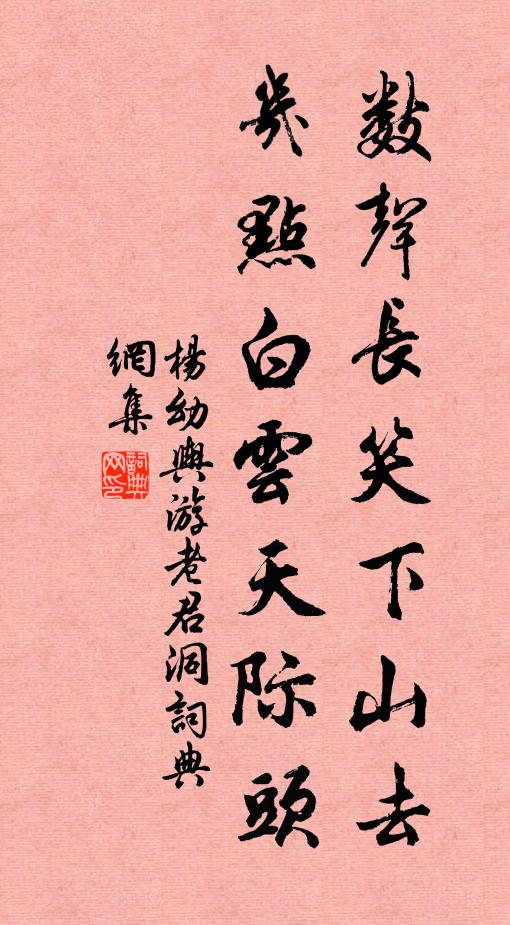 數聲長笑下山去
幾點白雲天際頭
楊幼輿游老君洞詞典
網集
詞典
网印